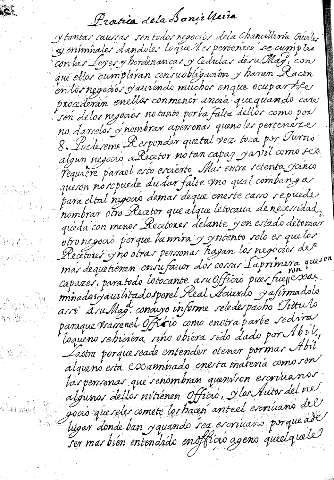 Pratica de la Bonis lleria
y tantas causas, son todos negocios de la Chancilleria Civiles
y criminales dandoles lo que les pertenece se cumplira
con las Leyes y hordenancas y Cedulas de su Mag.
que ellos cumpliran con su obligacion y haran Racon
en los negocios y aviendo muchos en que ocuparse
procederan en ellos con menor ancia que quando care
sen de los negocios no tanto por la falta dellos como por
no darselos y nombrar a personas que no les pertenece
8. Puedeseme Responder que tal vez toca por Turno
algun negocio a Recetor no tan capaz y avil como se
Requiere para ol esto es ciento Mas entre setenta y cinco
que son no se puede dudar falte uno qual combenga
para el tal negocio demas de que en este caso se puede
nombrar otro Recetor que al que le tocava de necesidad
queda con menos Recetores delante y en estado de tomar
otro negocio porque la mira y yntento solo es que los
Recetores y no otras personas hagan los negocios de
mas de que tienen en su favor dos cosas La primera que son
capaces, para todo lo tocante a su Officio pues fueron exa
minados y avilitados por el Real Acuerdo y afirmandolo
assi a su Mag. con cuyo informe se le despacho Titulo
para que Vsase el Officio como en otra parte se dira
lo que no se hiciera, sino obiera sido dado por Abil,
La otra porque se a de entender o tener por mas Abil
alguno esta examinado en esta materia como son
las personas que se nombran que no son escrivanos
algunos dellos ni tienen Officio, y los Autos del ne
gocio que se les comete los hacen ante el escrivano del
lugar donde ban y quando sea escrivano porque a de
ser mas bien entendido en Officio ageno que el que le